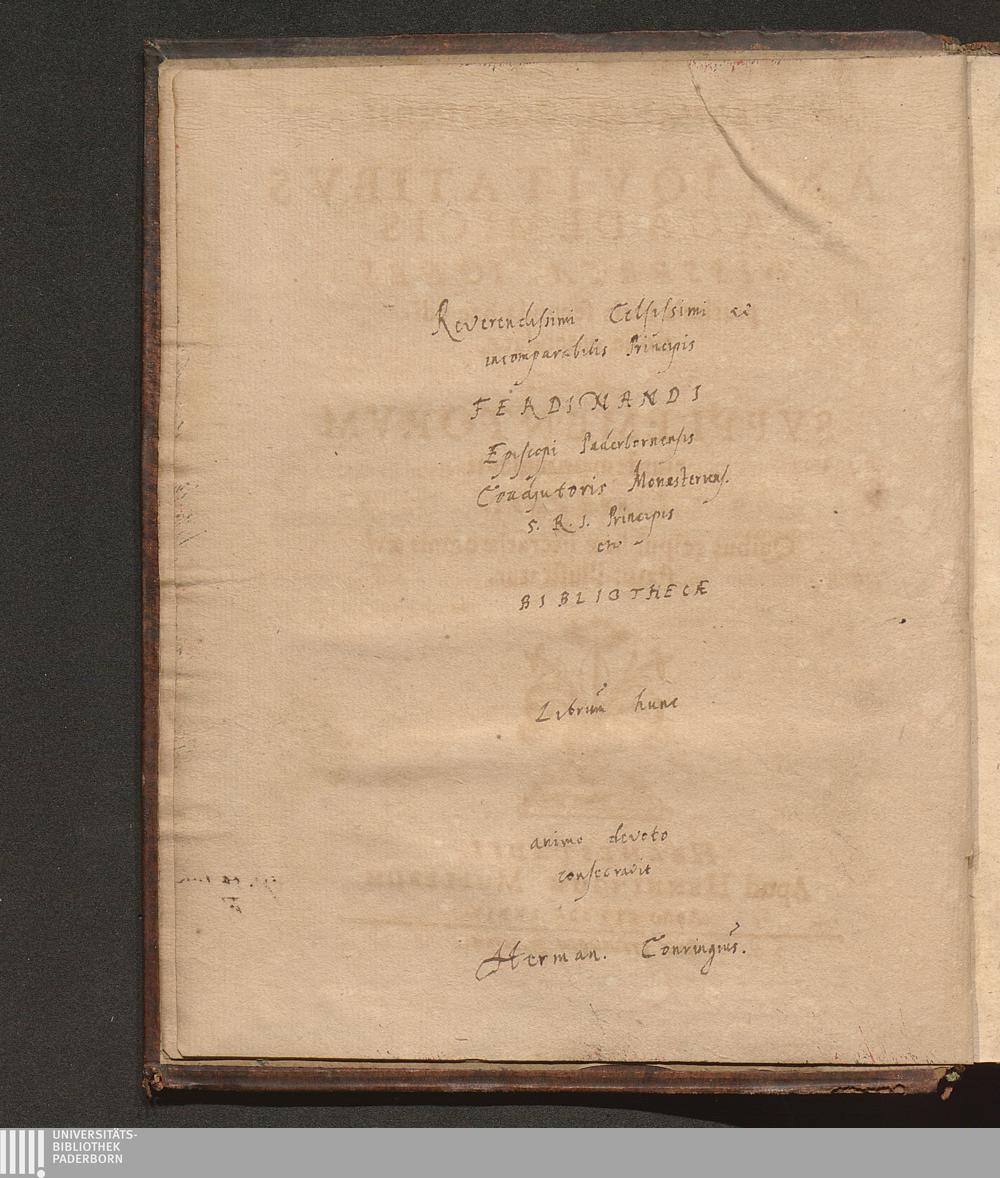 Reverendissimi Celsissimi ac
incomparabilis Principis
FERDINANDI
Episcopi Paderbornensis
Coadjutoris Monasteriens.
S. R. I. Principis
etc
BIBLIOTHECÆ
Librum hunc
animo devoto
consecravit
Herman. Conringius.
UNIVERSITÄTS-
BIBLIOTHEK
PADERBORN